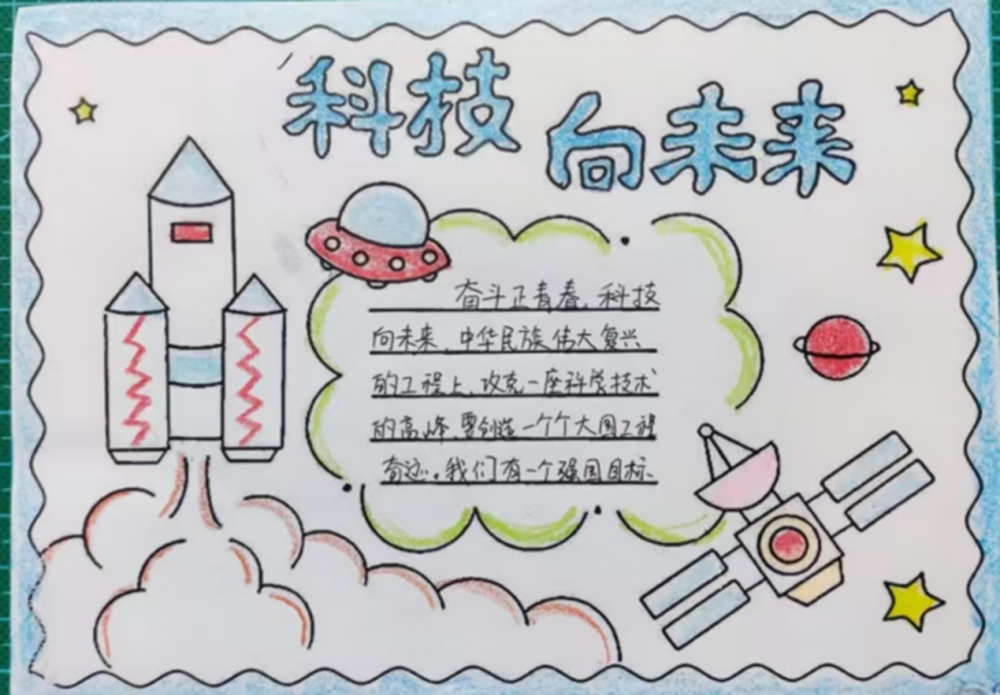 科技向未来
奋斗正青春,科技
向未来,中华民族伟大复兴
的工程上,攻克一座科学技术
的高峰,要创造一个个大国工程
奇迹。我们有一个强国目标